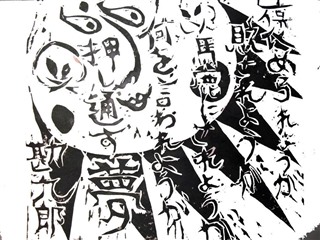 褒められようが
貶されようが
馬鹿にされようが
何を言われようが
押し通す夢
勘九郎